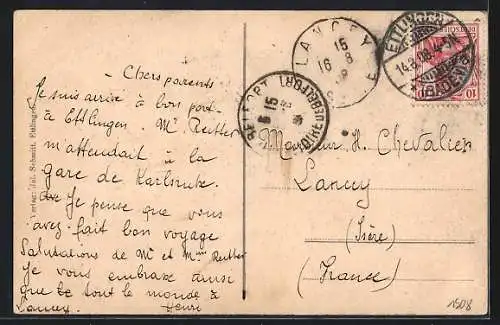 Chers parents
Je suis arrivé à bon port
à Ettlingen. Mr Reutter
m'attendait à la
gare de Karlsruhe.
Je pense que vous
avez fait bon voyage
Salutations de Mr et Mme Reutter
Je vous embrasse ainsi
que tout le monde à
Lancey. Henri
Verlag: Jul. Schmitt, Ettlingen
LANCEY
15
16 8
08
ISÈRE
BELFORT
15
8
ETTLINGEN
14.8.08. 4-5N
(BADEN)
10
10
Monsieur H. Chevalier
Lancey
(Isère)
(France)
1508